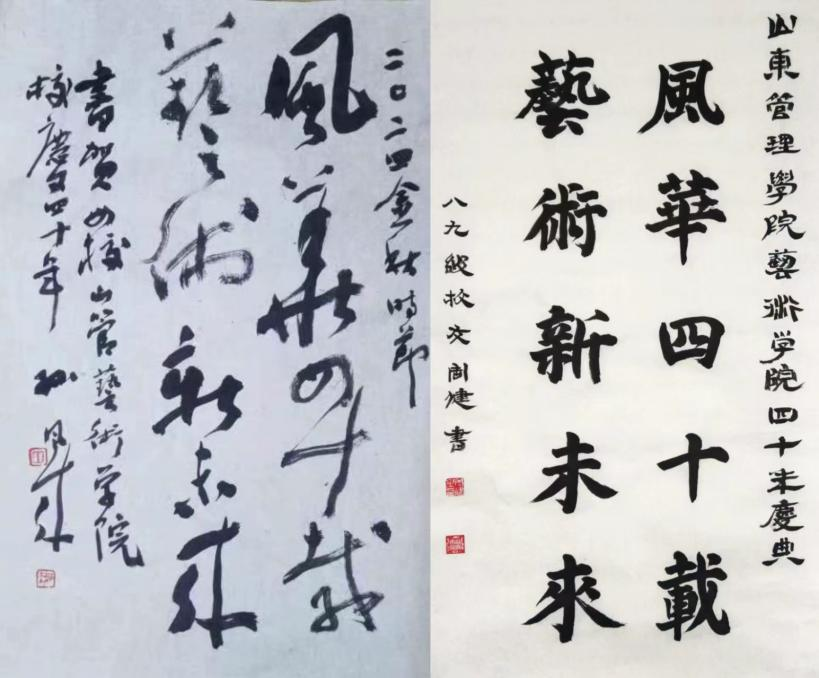 二〇二四金秋時節
風華四十載
藝術新未来
書賀母校山管藝術学院
校慶四十年
山東管理學院藝術学院四十年慶典
風華四十載
藝術新未來
八九級校友周健書